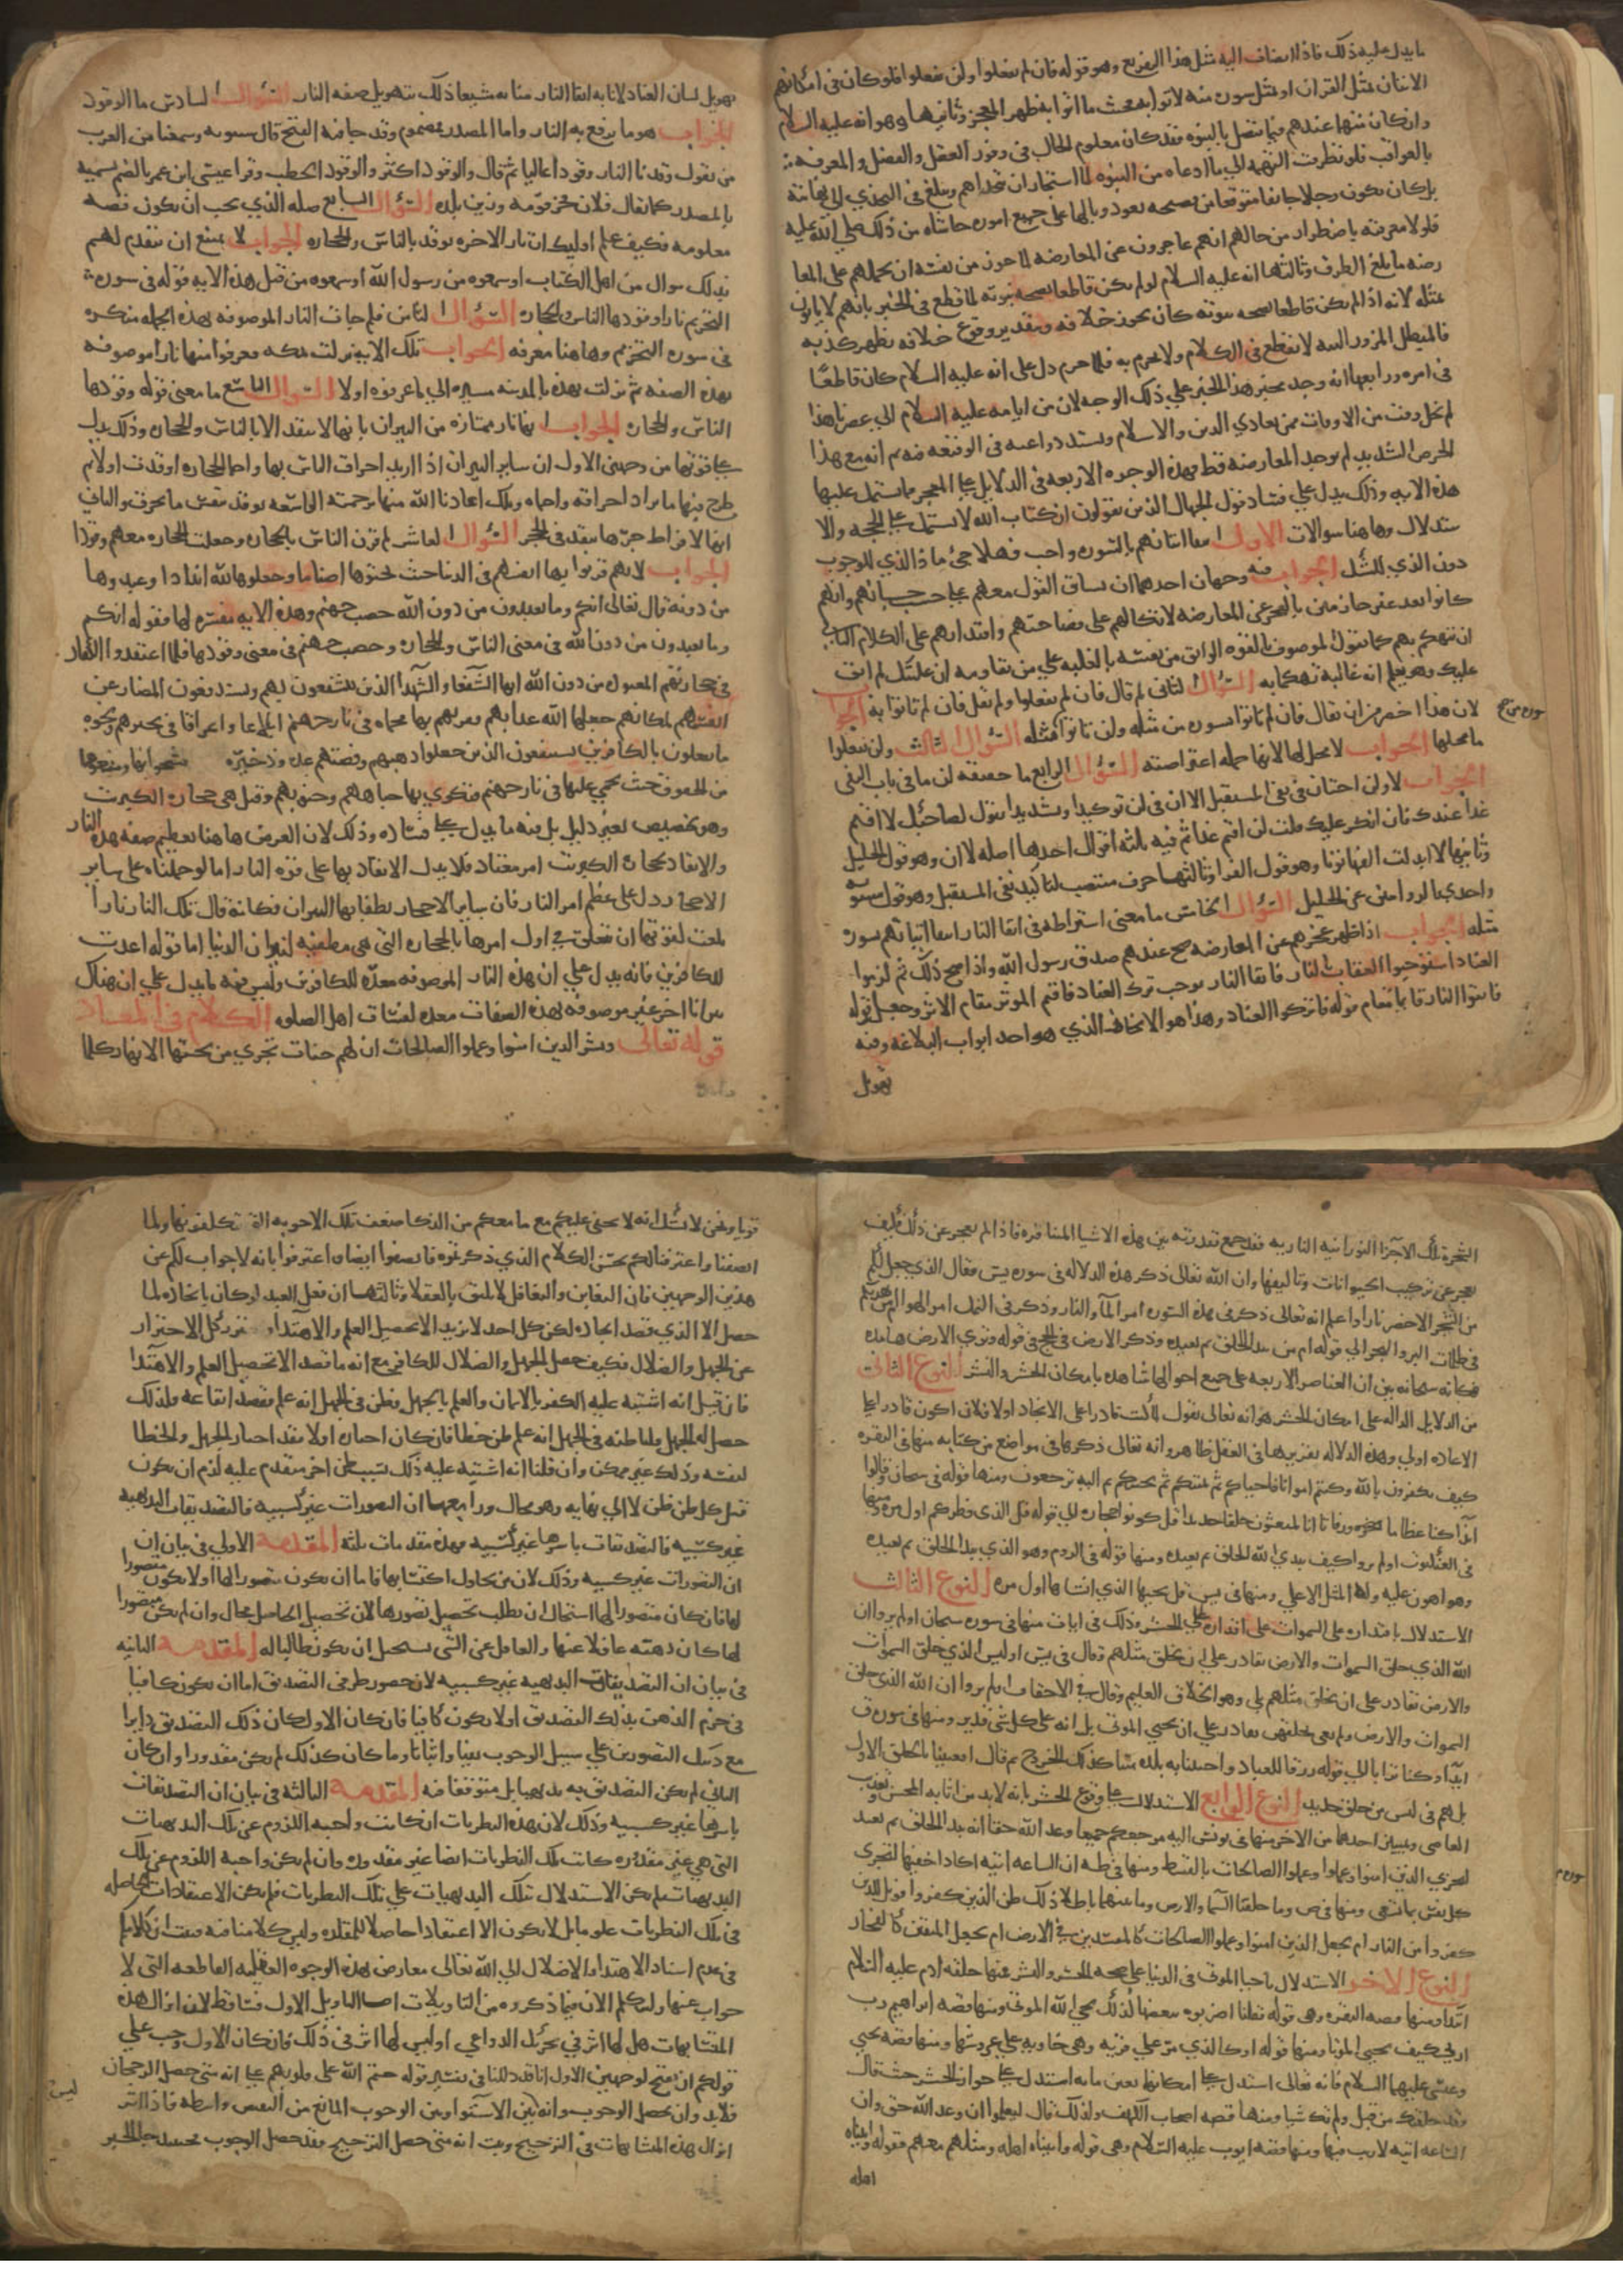 ما يدل عليه ذلك فاذا انضاف اليه مثل هذا التقريع وهو قوله فان لم تفعلوا ولن تفعلوا فلو كان في امكانهم
الاتيان بمثل القران او بمثل سورة منه لاتوا به فحيث ما اتوا به ظهر المعجز وثانيها وهو انه عليه السلام
وان كان متهما عندهم فيما يتصل بالنبوة فقد كان معلوم الحال في وفور العقل والفضل والمعرفة
بالعواقب فلو تطرقت التهمة الى ما ادعاه من النبوة لما استجاز ان يتحداهم ويبلغ في التحدي الى نهايته
بل كان يكون وجلا خائفا متوقعا من فضيحة يعود وبالها على جميع اموره حاشاه من ذلك صلى الله عليه
فلولا معرفته باضطرار من حالهم انهم عاجزون عن المعارضة لما جوز من نفسه ان يحملهم على المعا
رضة بابلغ الطرق وثالثها انه عليه السلام لو لم يكن قاطعا بصحة نبوته لما قطع في الخبر بانهم لا ياتون
بمثله لانه اذا لم يكن قاطعا بصحة نبوته كان يجوز خلافه وبتقدير وقوع خلافه يظهر كذبه
فالمبطل المزور البتة لا يقطع في الكلام ولا يجزم به فلما جزم دل على انه عليه السلام كان قاطعا
في امره ورابعها انه وجد مخبر هذا الخبر على ذلك الوجه لان من ايامه عليه السلام الى عصرنا هذا
لم يخل وقت من الاوقات ممن يعادي الدين والاسلام وتشتد دواعيه في الوقيعة فيه ثم انه مع هذا
الحرص الشديد لم يوجد المعارضة قط فهذه الوجوه الاربعة في الدلايل على المعجز مما يشتمل عليها
هذه الاية وذلك يدل على فساد قول الجهال الذين يقولون ان كتاب الله لا يشتمل على الحجة والا
ستدلال وهاهنا سوالات الاول انتفا اتيانهم بالسورة واجب فهلا جئ ماذا الذي للوجوب
دون الذي للشك الجواب فيه وجهان احدهما ان يساق القول معهم على حسب حسبانهم وانهم
كانوا بعد غير جازمين بالعجز عن المعارضة لاتكالهم على فصاحتهم واقتدارهم على الكلام الثاني
ان يتهكم بهم كما يقول الموصوف بالقوة الواثق من نفسه بالغلبة على من يقاومه ان غلبتك لم ابق
عليك وهو يعلم انه غالبه تهكما به السؤال الثاني لم قال فان لم تفعلوا ولم يقل فان لم تاتوا به الجوا
لان هذا اخصر من ان يقال فان لم تاتوا بسورة من مثله ولن تاتوا بمثله السؤال الثالث ولن تفعلوا
ما محلها الجواب لا محل لها لانها جملة اعتراضية السؤال الرابع ما حقيقة لن ما في باب النفي
الجواب لا ولن اختان في نفي المستقبل الا ان في لن توكيدا وتشديدا تقول لصاحبك لا اقيم
غدا عندك فان انكر عليك قلت لن اقيم غدا ثم فيه ثلثة اقوال احدها اصله لا ان وهو قول الخليل
وثانيها لا ابدلت الفها نونا وهو قول الفرا وثالثها حرف منتصب لتاكيد نفي المستقبل وهو قول سيبويه
واحدى الروايتين عن الخليل السؤال الخامس ما معنى اشتراطه في اتقا النار انتفا اتيانهم بسورة
مثله الجواب اذا ظهر عجزهم عن المعارضة صح عندهم صدق رسول الله واذا صح ذلك ثم لزموا
العناد استوجبوا العقاب بالنار فاتقا النار يوجب ترك العناد فاقيم الموثر مقام الاثر وجعل قوله
فاتقوا النار قايما مقام قوله فاتركوا العناد وهذا هو الايجاز الذي هو احد ابواب البلاغة وفيه
تهويل
سورة من مثله
تهويل لشان العناد لانابة اتقا النار منابه متبعا ذلك بتهويل صفة النار السؤال السادس ما الوقود
الجواب هو ما يرفع به النار واما المصدر فمضموم وقد جا فيه الفتح قال سيبويه وسمعنا من العرب
من يقول وقدنا النار وقودا عاليا ثم قال والوقود اكثر والوقود الحطب وقرا عيسى ابن عمر بالضم تسمية
بالمصدر كما يقال فلان فخر قومه وزين بلده السؤال السابع صلة الذي يجب ان يكون قصة
معلومة فكيف علم اوليك ان نار الاخرة توقد بالناس والحجارة الجواب لا يمتنع ان يتقدم لهم
بذلك سوال من اهل الكتاب او سمعوه من رسول الله او سمعوه من قبل هذه الاية قوله في سورة
التحريم نارا وقودها الناس والحجارة السؤال الثامن فلم جات النار الموصوفة بهذه الجملة منكرة
في سورة التحريم وهاهنا معرفة الجواب تلك الاية نزلت بمكة فعرفوا منها نارا موصوفة
بهذه الصفة ثم نزلت هذه بالمدينة مشيرة الى ما عرفوه اولا السوال التاسع ما معنى قوله وقودها
الناس والحجارة الجواب انها نار ممتازة من النيران بانها لا تتقد الا بالناس والحجارة وذلك يدل
على قوتها من وجهين الاول ان ساير النيران اذا اريد احراق الناس بها او احما الحجارة اوقدت اولا ثم
طرح فيها ما يراد احراقه واحماه وتلك اعاذنا الله منها برحمته الواسعة توقد بنفس ما يحرق والثاني
انها لافراط حرها تتقد في الحجر السؤال العاشر لم قرن الناس بالحجارة وجعلت الحجارة معهم وقودا
الجواب لانهم قرنوا بها انفسهم في الدنيا حيث نحتوها اصناما وجعلوها لله اندادا وعبدوها
من دونه قال تعالى انكم وما تعبدون من دون الله حصب جهنم وهذه الاية مفسرة لها فقوله انكم
وما تعبدون من دون الله في معنى الناس والحجارة وحصب جهنم في معنى وقودها فلما اعتقدوا الكفار
في حجارتهم المعبودة من دون الله انها الشفعا والشهدا الذين يستشفعون بهم ويستدفعون المضار عن
انفسهم بمكانهم جعلها الله عذابهم فقرنهم بها محماة في نار جهنم ابلاغا واغراقا في تحسرهم ونحوه
ما يفعلون بالكافرين يستنفعون الذين جعلوا ذهبهم وفضتهم عدة وذخيرة فشحوا بها ومنعوها
من الحقوق حيث يحمى عليها في نار جهنم فتكوى بها جباههم وجنوبهم وقيل هي حجارة الكبريت
وهو تخصيص بغير دليل بل فيه ما يدل على فساده وذلك لان الغرض هاهنا تعظيم صفة هذه النار
والايقاد بحجارة الكبريت امر معتاد فلا يدل الايقاد بها على قوة النار اما لو حملناه على ساير
الاحجار دل على عظم امر النار فان ساير الاحجار يطفا بها النيران فكانه قال تلك النار نارا
بلغت لقوتها ان تتعلق في اول امرها بالحجارة التي هي مطفية لنيران الدنيا اما قوله اعدت
للكافرين فانه يدل على ان هذه النار الموصوفة معدة للكافرين وليس فيه ما يدل على ان هناك
نيرانا اخر غير موصوفة بهذه الصفات معدة لفساق اهل الصلوة الكلام في المعاد
قوله تعالى وبشر الذين امنوا وعملوا الصالحات ان لهم جنات تجري من تحتها الانهار كلما
الشجرة تلك الاجزا النورانية النارية فقد جمع بقدرته بين هذه الاشيا المتنافرة فاذا لم يعجز عن ذلك فكيف
يعجز عن تركيب الحيوانات وتاليفها وان الله تعالى ذكر هذه الدلالة في سورة يس فقال الذي جعل لكم
من الشجر الاخضر نارا واعلم انه تعالى ذكر في هذه السورة امر الما والنار وذكر في النمل امر الهوا امن يهديكم
في ظلمات البر والبحر الى قوله ام من يبدا الخلق ثم يعيده وذكر الارض في الحج في قوله وترى الارض هامدة
فكانه سبحانه بين ان العناصر الاربعة على جميع احوالها شاهدة بامكان الحشر والنشر النوع الثاني
من الدلايل الدالة على امكان الحشر هو انه تعالى يقول لما كنت قادرا على الايجاد اولا فلان اكون قادرا على
الاعادة اولى وهذه الدلالة تقريرها في العقل ظاهر وانه تعالى ذكرها في مواضع من كتابه منها في البقرة
كيف تكفرون بالله وكنتم امواتا فاحياكم ثم يميتكم ثم يحييكم ثم اليه ترجعون ومنها قوله في سبحان وقالوا
ائذا كنا عظاما ورفاتا ائنا لمبعوثون خلقا جديدا قل كونوا حجارة الى قوله قل الذي فطركم اول مرة ومنها
في العنكبوت اولم يروا كيف يبدئ الله الخلق ثم يعيده ومنها قوله في الروم وهو الذي يبدا الخلق ثم يعيده
وهو اهون عليه وله المثل الاعلى ومنها في يس قل يحييها الذي انشاها اول مرة النوع الثالث
الاستدلال باقتداره على السموات على اقتداره على الحشر وذلك في ايات منها في سورة سبحان اولم يروا ان
الله الذي خلق السموات والارض بقادر على ان يخلق مثلهم وقال في يس اوليس الذي خلق السموات
والارض بقادر على ان يخلق مثلهم بلى وهو الخلاق العليم وقال في الاحقاف اولم يروا ان الله الذي خلق
السموات والارض ولم يعي بخلقهن بقادر على ان يحيي الموتى بلى انه على كل شي قدير ومنها في سورة ق
ائذا متنا وكنا ترابا الى قوله رزقا للعباد واحيينا به بلدة ميتا كذلك الخروج ثم قال افعيينا بالخلق الاول
بل هم في لبس من خلق جديد النوع الرابع الاستدلال على وقوع الحشر بانه لابد من اثابة المحسن وتعذيب
العاصي وتمييز احدهما من الاخر منها في يونس اليه مرجعكم جميعا وعد الله حقا انه يبدا الخلق ثم يعيده
ليجزي الذين امنوا وعملوا الصالحات بالقسط ومنها في طه ان الساعة اتية اكاد اخفيها لتجزى
كل نفس بما تسعى ومنها في ص وما خلقنا السما والارض وما بينهما باطلا ذلك ظن الذين كفروا فويل للذين
كفروا من النار ام نجعل الذين امنوا وعملوا الصالحات كالمفسدين في الارض ام نجعل المتقين كالفجار
النوع الاخر الاستدلال باحيا الموتى في الدنيا على صحة الحشر والنشر منها خلقه ادم عليه السلام
ابتدا ومنها قصة البقرة وهي قوله فقلنا اضربوه ببعضها كذلك يحيى الله الموتى ومنها قصة ابراهيم رب
ارني كيف تحيي الموتى ومنها قوله او كالذي مر على قرية وهي خاوية على عروشها ومنها قصة يحيى
وعيسى عليهما السلام فانه تعالى استدل على امكانهما بعين ما به استدل على جواز الحشر حيث قال
وقد خلقتك من قبل ولم تك شيا ومنها قصة اصحاب الكهف ولذلك قال ليعلموا ان وعد الله حق وان
الساعة اتية لا ريب فيها ومنها قصة ايوب عليه السلام وهي قوله واتيناه اهله ومثلهم معهم فقوله واتيناه
اهله
سورة
قويا ونحن لا نشك انه لا يخفى عليكم مع ما معكم من الذكا ضعف تلك الاجوبة التي تكلفوا بها ولما
انصفنا واعترفنا لكم بحسن الكلام الذي ذكرتموه فانصفوا ايضا واعترفوا بانه لا جواب لكم عن
هذين الوجهين فان التعامي والتغافل لا يليق بالعقلا وثالثها ان فعل العبد لو كان بايجاده لما
حصل الا الذي قصد ايجاده لكن كل احد لا يريد الا تحصيل العلم والاهتدا ويحترز كل الاحتراز
عن الجهل والضلال فكيف يحصل الجهل والضلال للكافر مع انه ما قصد الا تحصيل العلم والاهتدا
فان قيل انه اشتبه عليه الكفر بالايمان والعلم بالجهل فظن في الجهل انه علم فقصد ايقاعه ولذلك
حصل له الجهل قلنا ظنه في الجهل انه علم ظن خطا فان كان اختاره اولا فقد اختار الجهل والخطا
لنفسه وذلك غير ممكن وان قلنا انه اشتبه عليه ذلك بسبب ظن اخر متقدم عليه لزم ان يكون
قبل كل ظن ظن لا الى نهاية وهو محال ورابعها ان التصورات غير كسبية فالتصديقات البديهية
غير كسبية فالتصديقات باسرها غير كسبية فهذه مقدمات ثلثة المقدمة الاولى في بيان ان
ان التصورات غير كسبية وذلك لان من يحاول اكتسابها فاما ان يكون متصورا لها او لا يكون متصورا
لها فان كان متصورا لها استحال ان يطلب تحصيل تصورها لان تحصيل الحاصل محال وان لم يكن متصورا
لها كان ذهنه غافلا عنها والغافل عن الشي يستحيل ان يكون طالبا له المقدمة الثانية
في بيان ان التصديقات البديهية غير كسبية لان حصور طرفي التصديق اما ان يكون كافيا
في جزم الذهن بذلك التصديق او لا يكون كافيا فان كان الاول كان ذلك التصديق دايرا
مع ذينك التصورين على سبيل الوجوب نفيا واثباتا وما كان كذلك لم يكن مقدورا وان كان
الثاني لم يكن التصديق به بديهيا بل متوقفا فيه المقدمة الثالثة في بيان ان التصديقات
باسرها غير كسبية وذلك لان هذه النظريات ان كانت واجبة اللزوم عن تلك البديهيات
التي هي غير مقدورة كانت تلك النظريات ايضا غير مقدورة وان لم يكن واجبة اللزوم عن تلك
البديهيات لم يكن الاستدلال بتلك البديهيات على تلك النظريات فلم يكن الاعتقادات الحاصلة
في تلك النظريات علوما بل لا يكون الا اعتقادا حاصلا للمقلد وليس كلامنا فيه فثبت ان كلامكم
في عدم اسناد الاهتدا والاضلال الى الله تعالى معارض بهذه الوجوه العقلية القاطعة التي لا
جواب عنها ولنتكلم الان فيما ذكروه من التاويلات اما التاويل الاول فساقط لان انزال هذه
المتشابهات هل لها اثر في تحريك الدواعي او ليس لها اثر في ذلك فان كان الاول وجب على
قولكم ان يقبح لوجهين الاول انا قد دللنا في تفسير قوله ختم الله على قلوبهم على انه متى حصل الرجحان
فلابد وان يحصل الوجوب وانه ليس بين الاستوا وبين الوجوب المانع من النقيض واسطة فاذا اثر
انزال هذه المتشابهات في الترجيح وثبت انه متى حصل الترجيح فقد حصل الوجوب فحينئذ جا الجبر
ليس